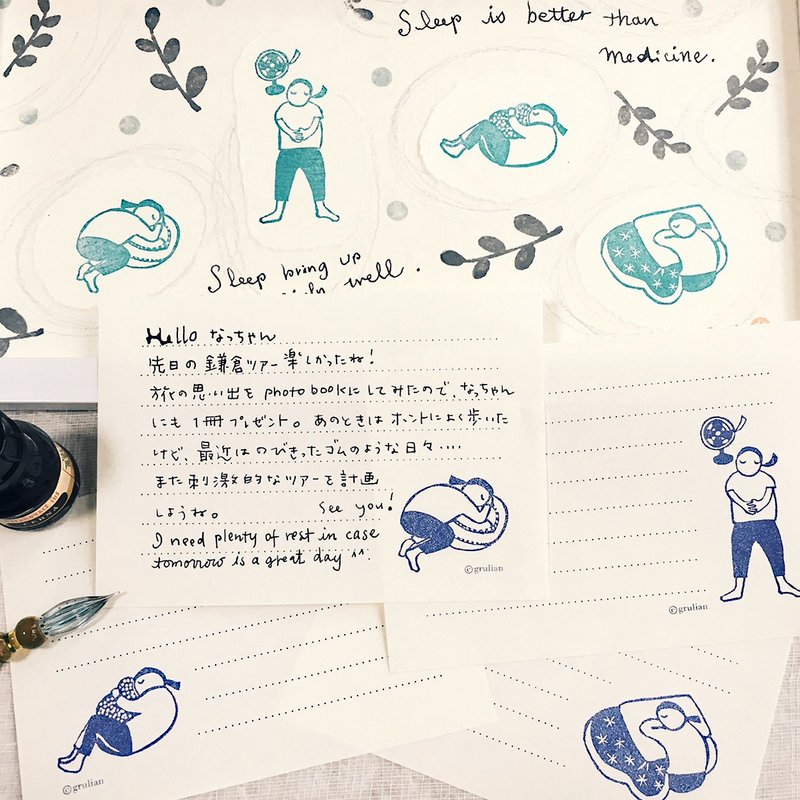 Sleep is better than
medicine.
Sleep bring up
well.
Hello なっちゃん
先日の鎌倉ツアー楽しかったね!
旅の思い出を photo bookにしてみたので、なっちゃん
にも1冊プレゼント。あのときはホントによく歩いた
けど、最近はのびきったゴムのような日々‥‥
また刺激的なツアーを計画
しようね。 See you!
I need plenty of rest in case
tomorrow is a great day
©grulian
©grulian
©grulian